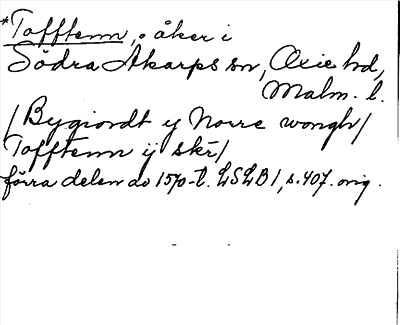 *Tofftenn, åker i
Södra Åkarps sn, Oxie hd,
Malm. l.
/Bygiordt y Norre wongh/
Tofftenn ij skr/
förra delen av 1570-t. LSLB 1, s. 407. orig.